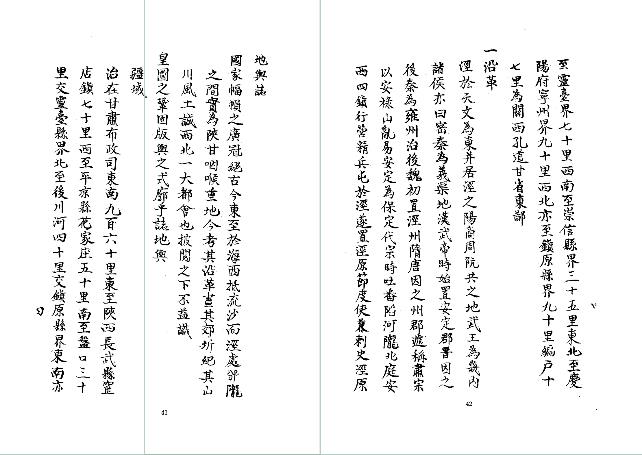 地輿誌
國家幅幀之廣冠絕古今東至於海西抵流沙而涇處邠隴
之間實為陝甘咽喉重地今考其沿革書其郊圻紀其山
川風土誠西北一大都會也披閱之下不益識
皇圖之鞏固版輿之式廓乎誌地輿
疆域
治在甘肅布政司東南九百六十里東至陝西長武縣窰
店鎮七十里西至平涼縣花家庄五十里南至盤口三十
里交靈臺縣界北至後川河四十里交鎮原縣界東南亦
41
至靈臺界七十里西南至崇信縣界三十五里東北至慶
陽府寧州界九十里西北亦至鎮原縣界九十里編戶十
七里為關西孔道甘省東鄙
一沿革
涇於天文為東井居涇之陽商周阮共之地武王為畿內
諸侯亦曰密秦為義渠地漢武帝時始置安定郡晉因之
後秦為雍州治後魏初置涇州隋唐因之州郡遞稱肅宗
以安祿山亂易安定為保定代宗時吐番陷河隴北庭安
西四鎮行營籍兵屯於涇遂置涇原節度使兼刺史涇原
42